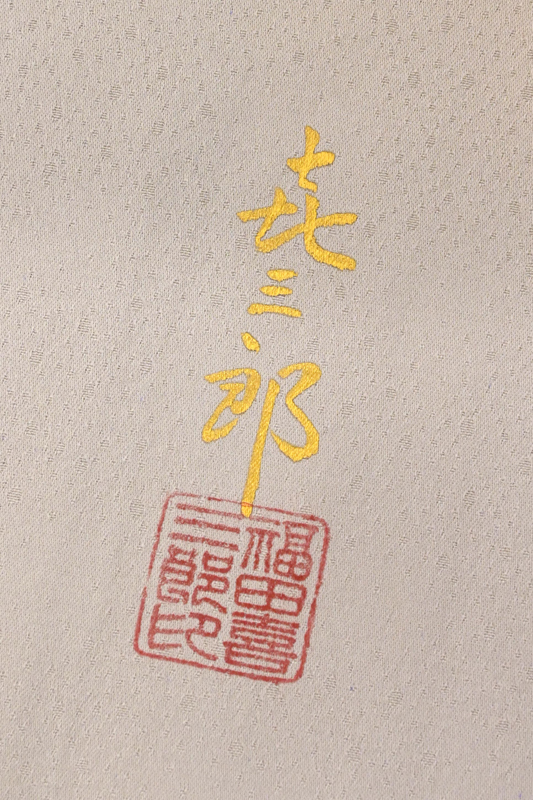 㐂三郎
福田喜
三郎印